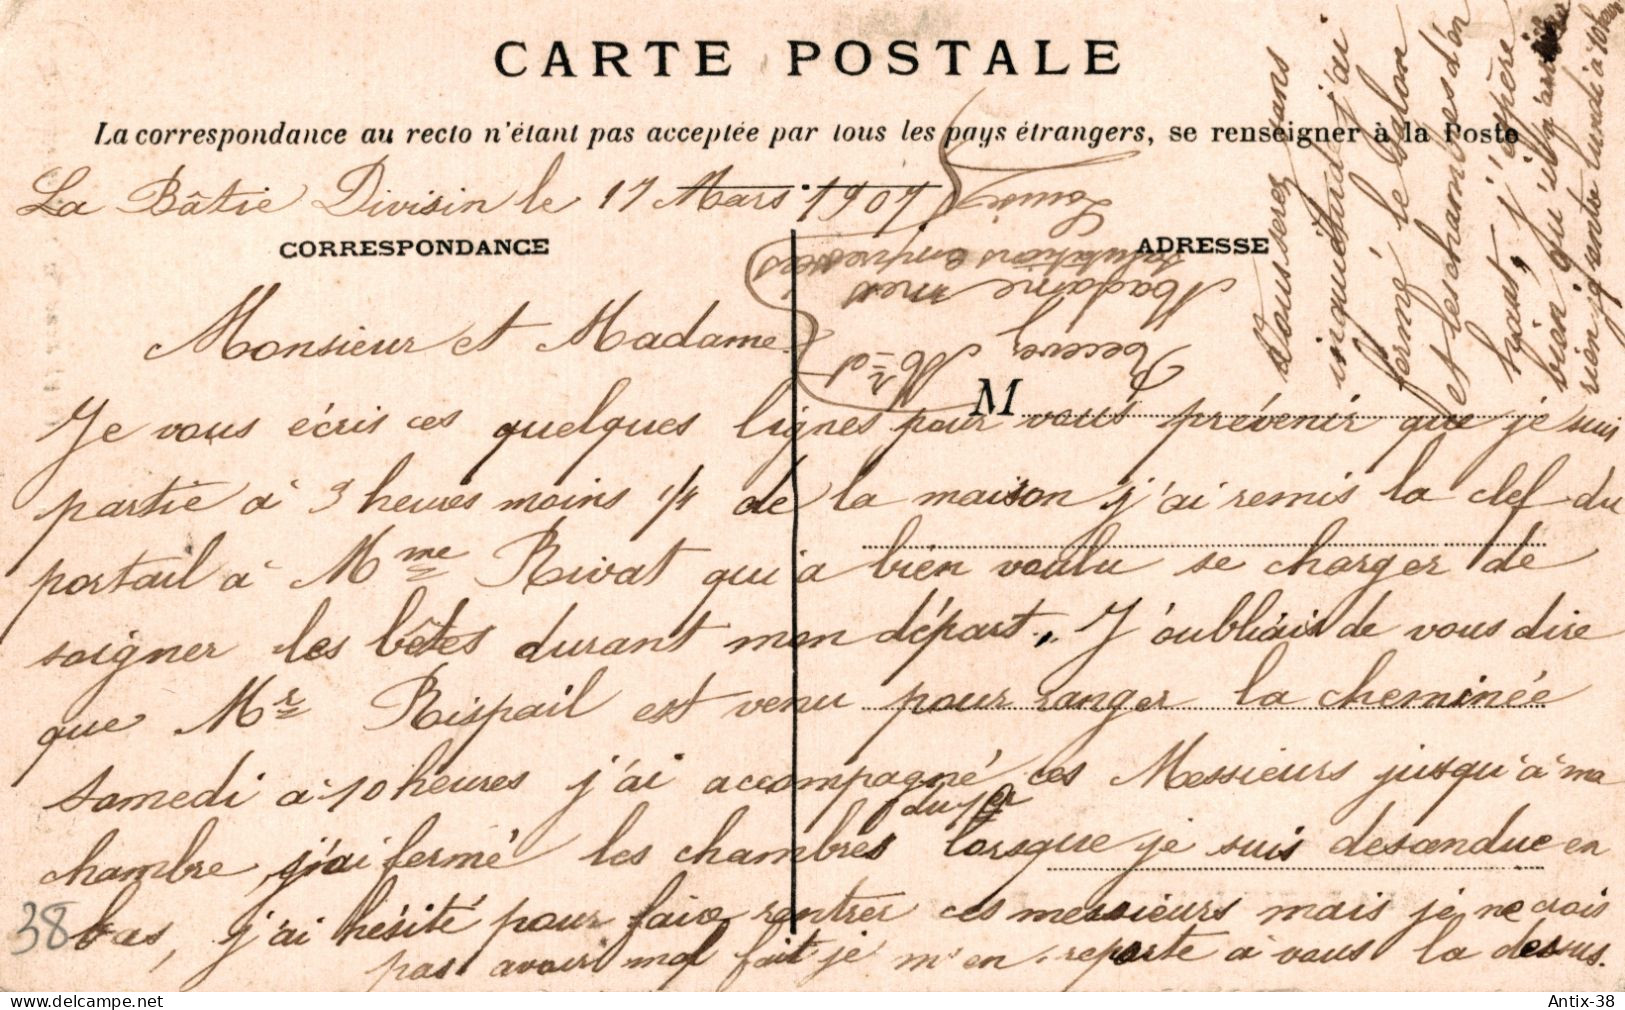 CARTE POSTALE
La correspondance au recto n'étant pas acceptée par tous les pays étrangers, se renseigner à la Poste
La Bâtie Divisin le 17 Mars 1907
CORRESPONDANCE
ADRESSE
Monsieur et Madame
M
Je vous écris ces quelques lignes pour vous prévenir que je suis
partie à 3 heures moins 1/4 de la maison j'ai remis la clef du
portail à Mme Rivat qui a bien voulu se charger de
soigner les bêtes durant mon départ. J'oubliais de vous dire
que Mr Rispail est venu pour ranger la cheminée
samedi à 10 heures j'ai accompagné ces Messieurs jusqu'à ma
chambre, j'ai fermé les chambres du 1er lorsque je suis desandue en
bas, j'ai hésité pour faire rentrer ces messieurs mais je ne crois
pas avoir mal fait je m'en reporte à vous la dessus.
Vous serez sans
inquiétude j'ai
fermé le salon
et les chambres d'en
haut, j'espère
bien qu'il n'arrivera
rien je rentre lundi à 10 heures
Recevez Mr et
Madame mes
salutations empressées
Louise
38
Antix-38